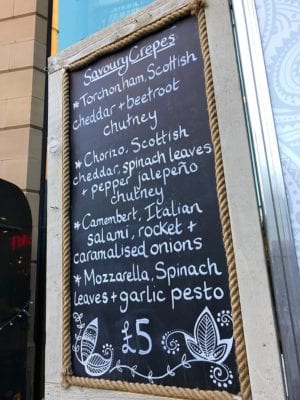 Savoury Crepes
* Torchon ham, Scottish
cheddar + beetroot
chutney
* Chorizo, Scottish
cheddar, spinach leaves
+ pepper, jalepeño
chutney
* Camembert, Italian
salami, rocket +
caramalised onions
* Mozzarella, Spinach
leaves + garlic pesto
£5